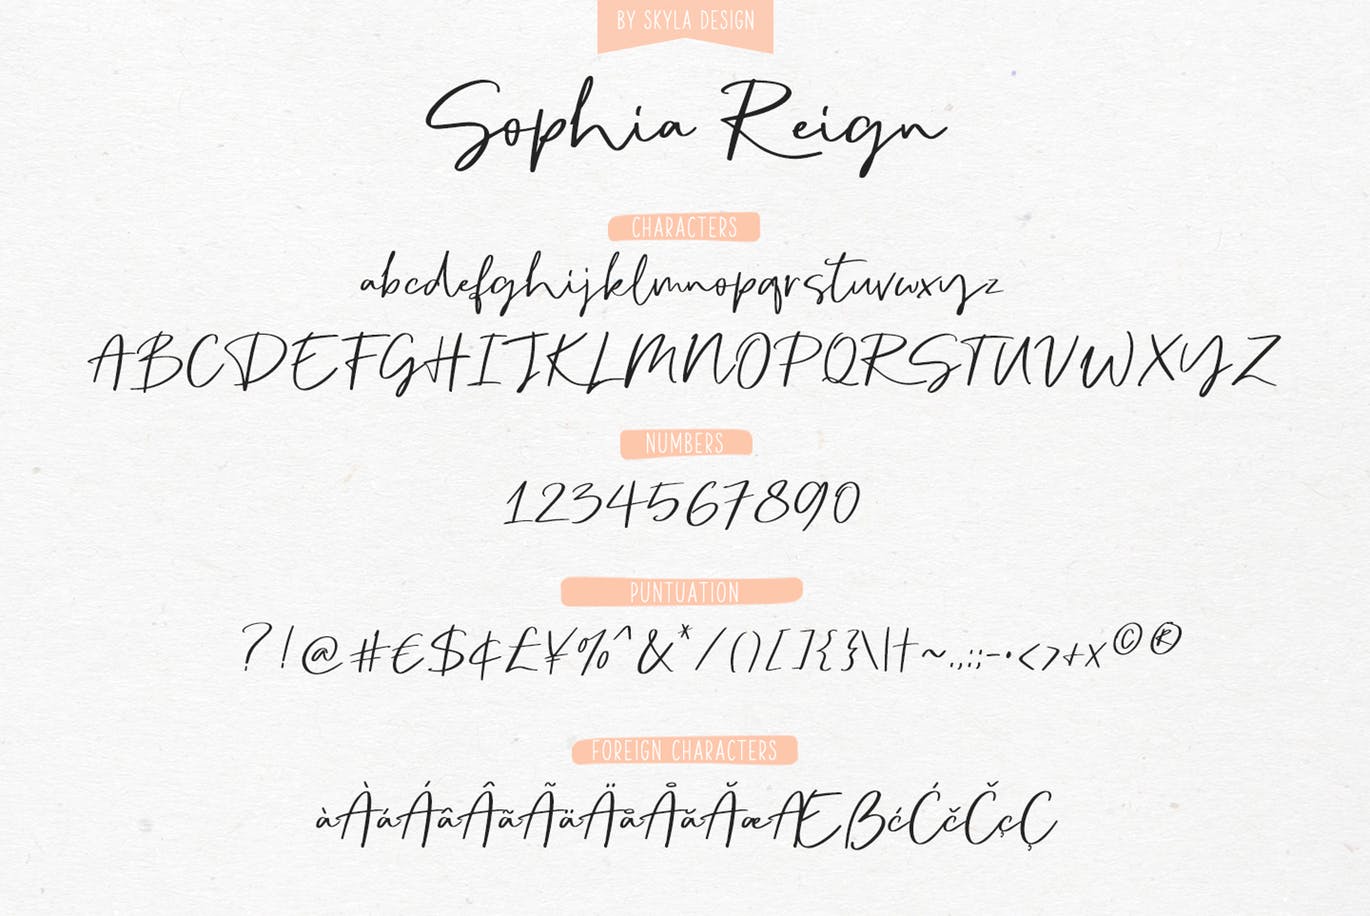 BY SKYLA DESIGN
Sophia Reign
CHARACTERS
abcdefghijklmnopqrstuvwxyz
ABCDEFGHIJKLMNOPQRSTUVWXYZ
NUMBERS
1234567890
PUNTUATION
?!@#€$¢£¥%^&*/()[]{}\|†~.,;:-·<>+x©®
FOREIGN CHARACTERS
àÀáÁâÂãÃäÄåÅăĂæÆßćĆčČçÇ